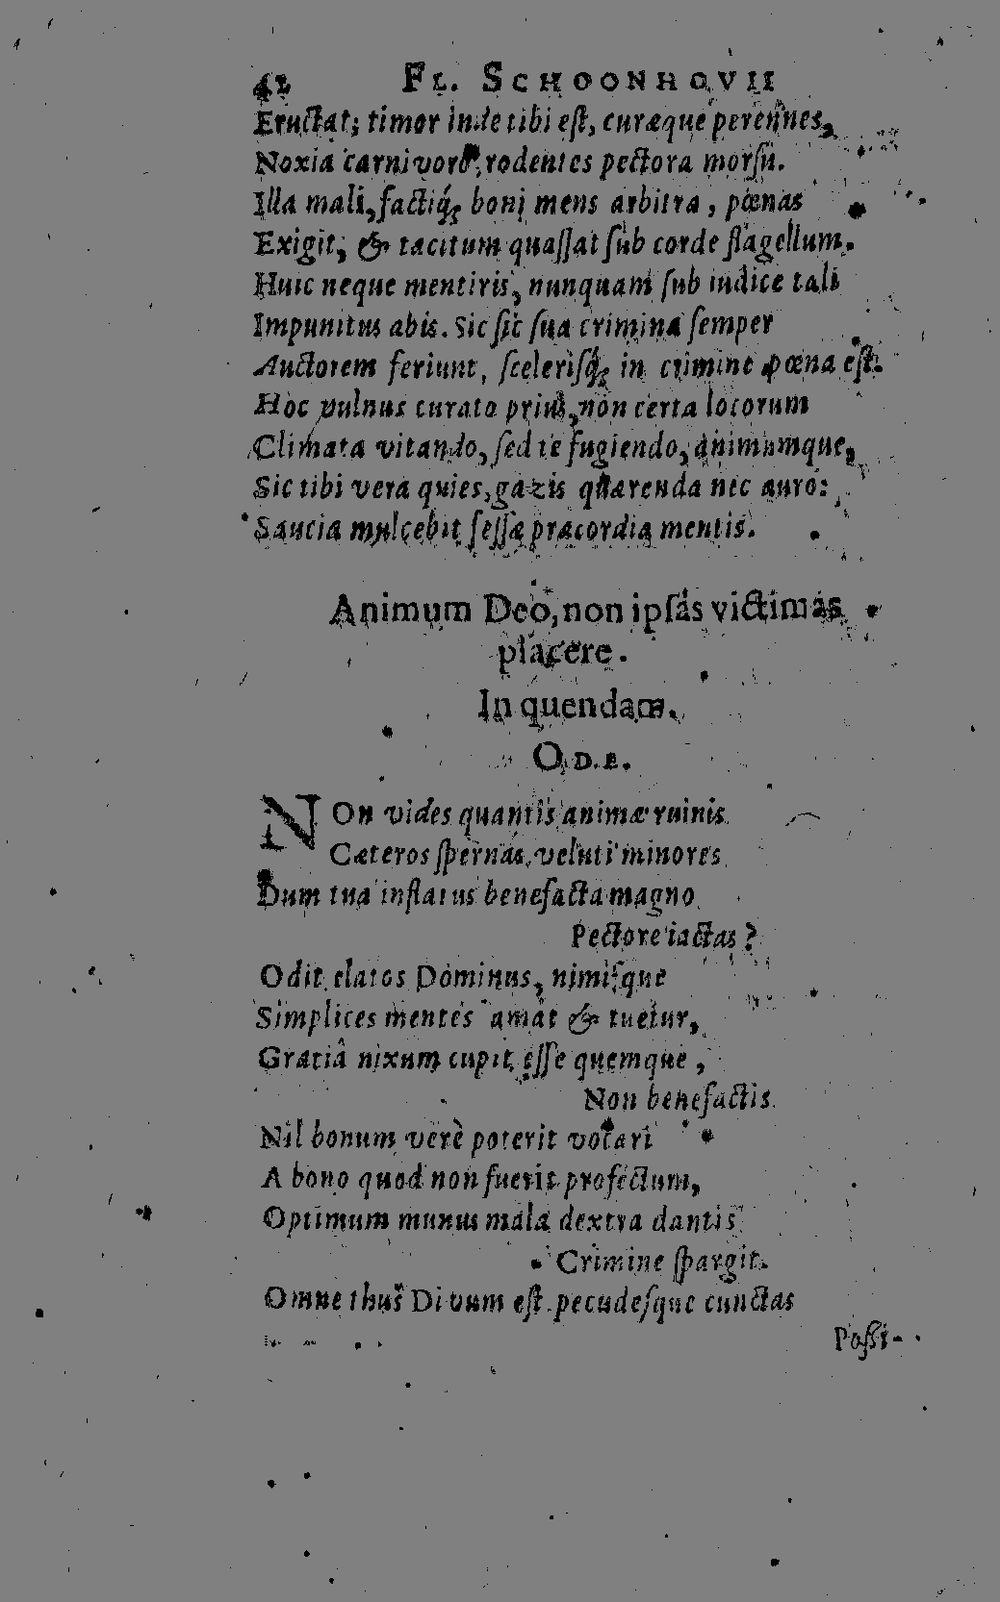 42 FL. SCHOONHOVII
Eructat; timor inde tibi eſt, curæque perennes,
Noxia carnivoro rodentes pectora morſu.
Illa mali, factiq́; boni mens arbitra, pœnas
Exigit, & tacitum quaſſat ſub corde flagellum.
Huic neque mentiris, nunquam ſub iudice tali
Impunitus abis. Sic ſic ſua crimina ſemper
Auctorem feriunt, ſceleriſq́; in crimine pœna eſt.
Hoc vulnus curato prius, non certa locorum
Climata vitando, ſed te fugiendo, animumque,
Sic tibi vera quies, gazis quærenda nec auro:
Saucia mulcebit feſſæ præcordia mentis.
Animum Deo, non ipſas victimas
placere.
In quendam.
ODE.
NOn vides quantis animæ ruinis
Cæteros ſpernas, veluti minores
Dum tua inflatus benefacta magno
Pectore iactas?
Odit elatos Dominus, nimiſque
Simplices mentes amat & tuetur,
Gratiâ nixum cupit eſſe quemque,
Non benefactis.
Nil bonum verè poterit vocari
A bono quod non fuerit profectum,
Optimum munus mala dextra dantis
Crimine ſpargit.
Omne thus Divum eſt pecudeſque cunctas
Poſſi-